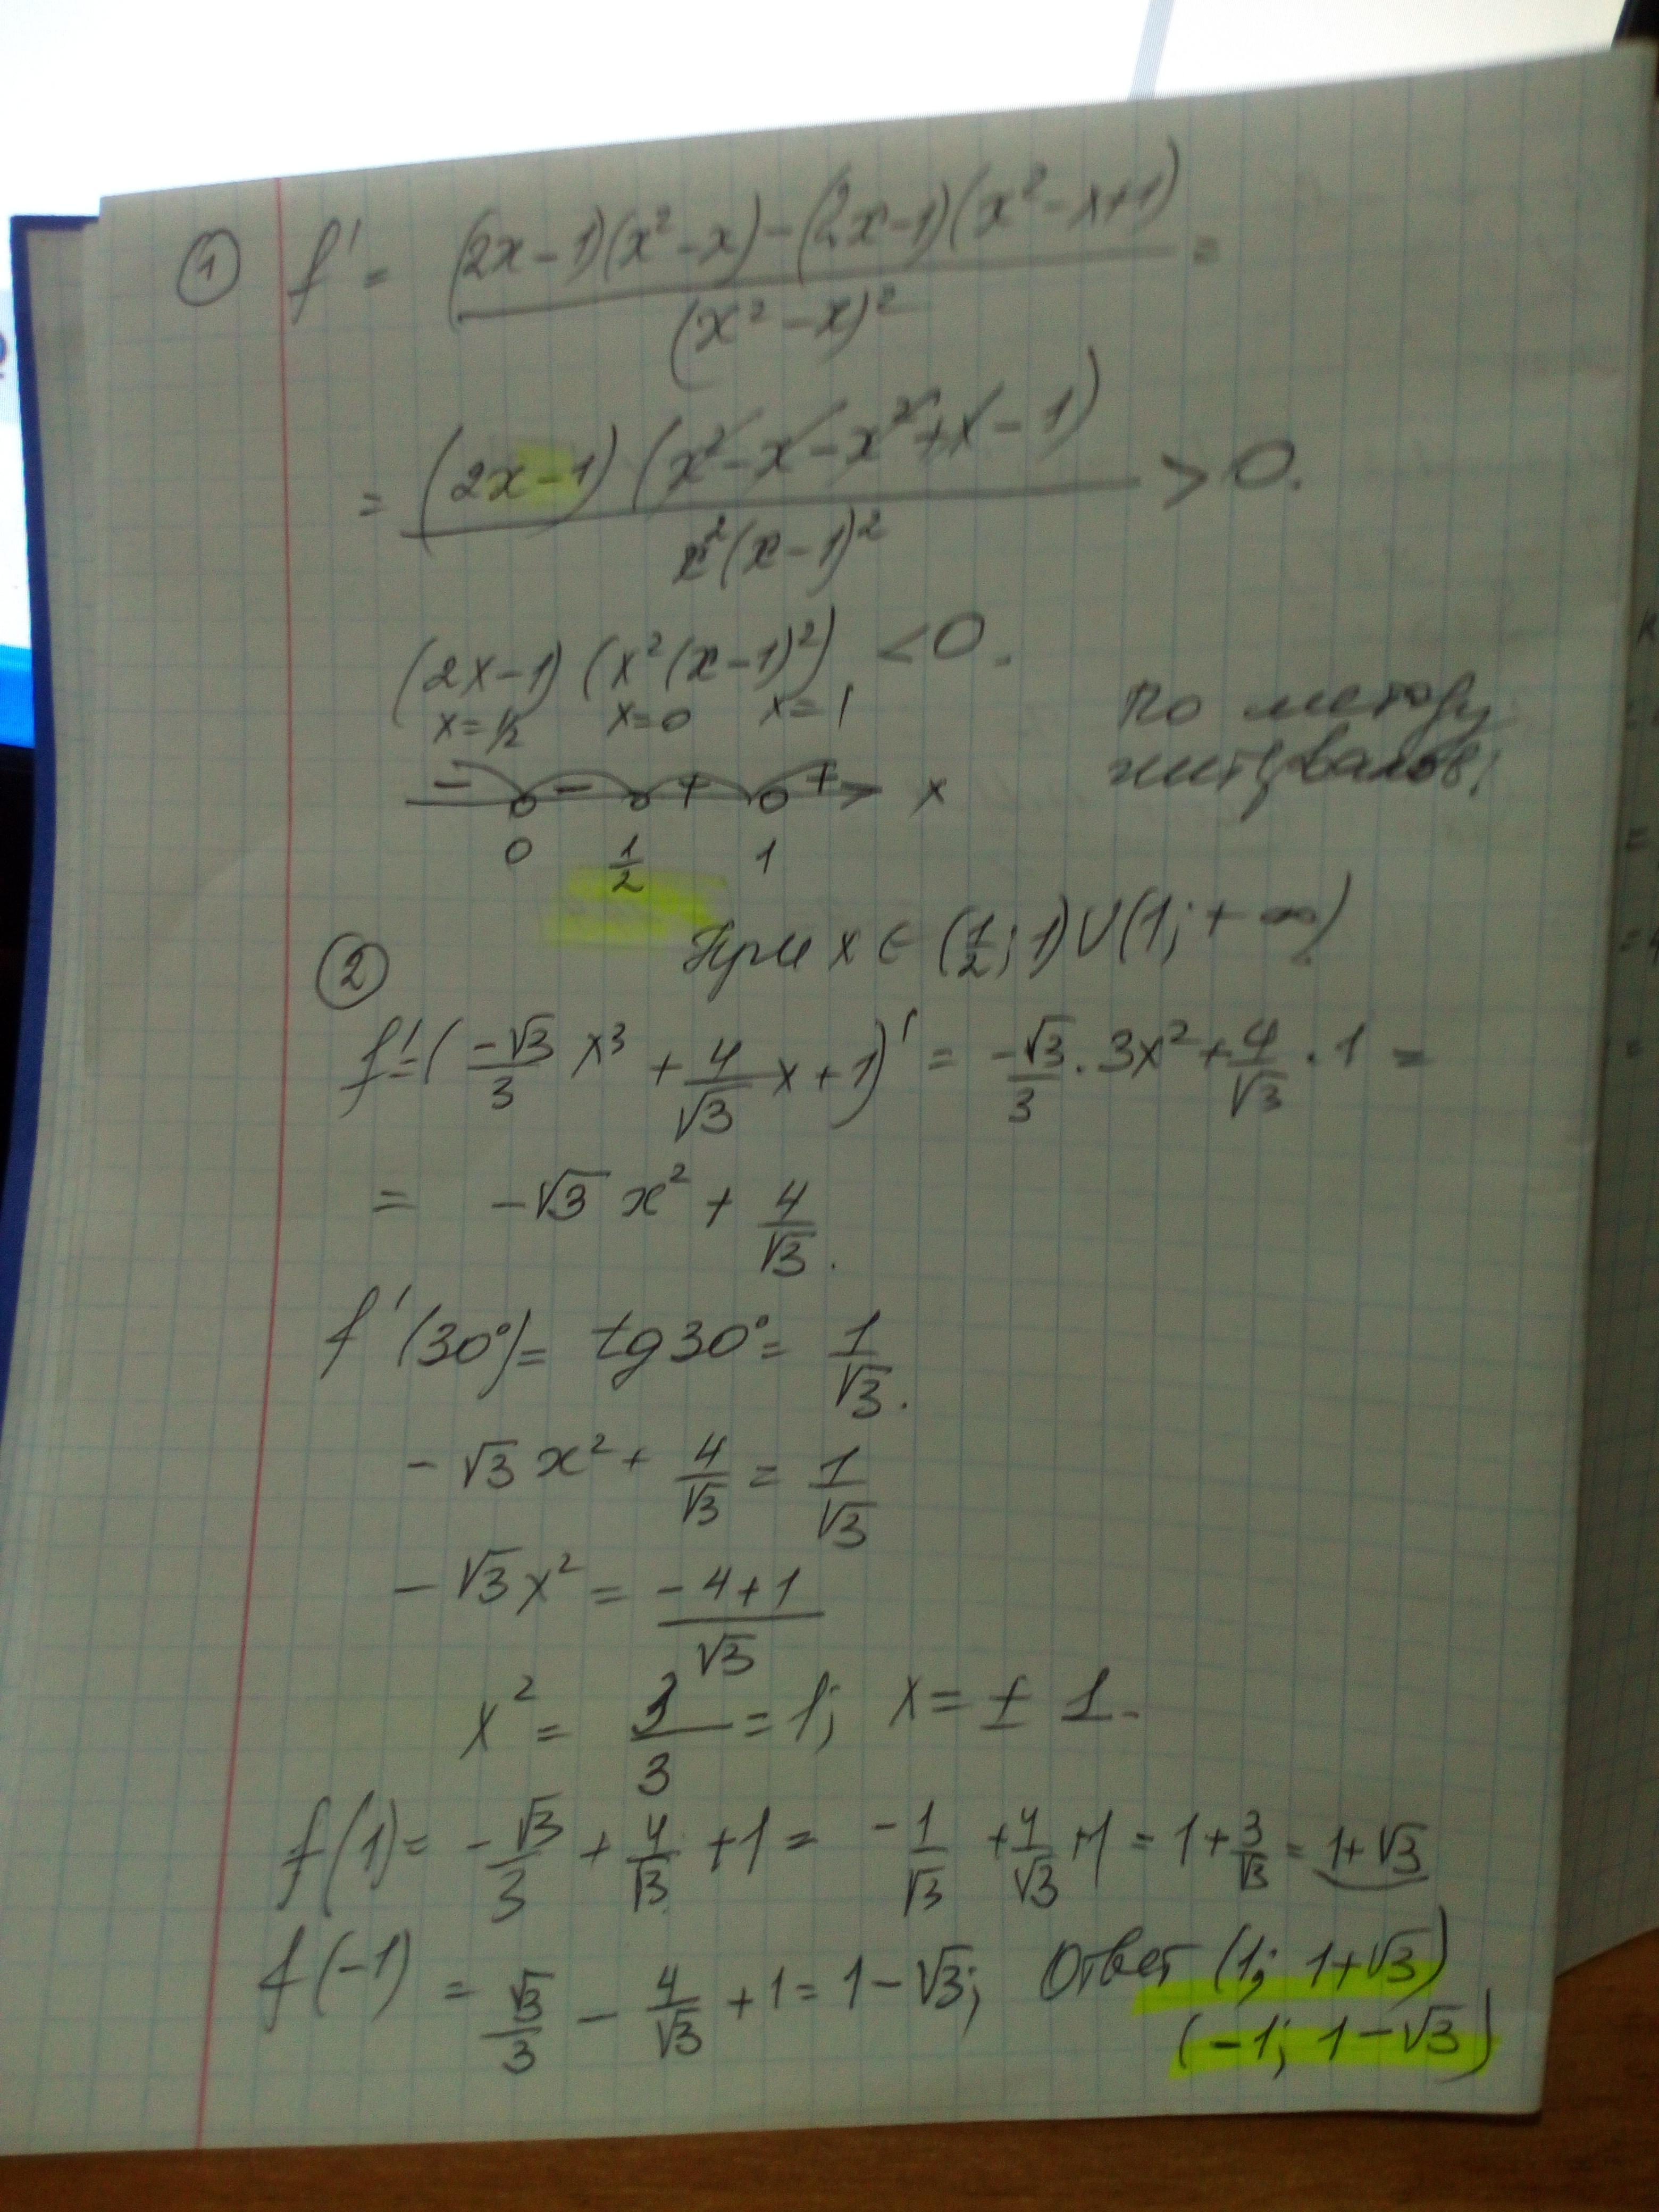 ① f' = ((2x-1)(x²-x)-(2x-1)(x²-x+1))/(x²-x)² =
= ((2x-1)(x²-x-x²+x-1))/(x²(x-1)²) > 0.
(2x-1)(x²(x-1)²) < 0.
x=1/2 x=0 x=1
По методу
интервалов:
- - + + x
0 1/2 1
При x ∈ (1/2; 1)∪(1; +∞)
②
f'=(-√3/3 x³ + 4/√3 x+1)' = -√3/3 · 3x² + 4/√3 · 1 =
= -√3 x² + 4/√3.
f'(30°)= tg30°= 1/√3.
-√3 x² + 4/√3 = 1/√3
-√3x² = (-4+1)/√3
x² = 3/3 = 1; x = ± 1.
f(1)= -√3/3 + 4/√3 +1 = -1/√3 + 4/√3 +1 = 1+3/√3 = 1+√3
f(-1) = √3/3 - 4/√3 +1 = 1-√3; Ответ (1; 1+√3)
(-1; 1-√3)